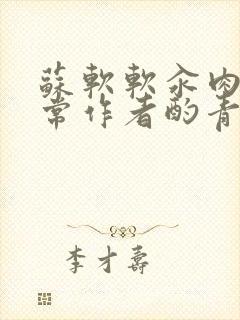 蘇軟軟汆肉
常作者酌青
李才壽